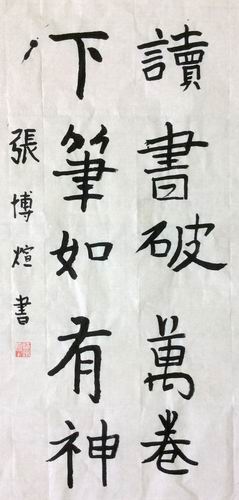 讀書破萬卷
下筆如有神
張博煊書